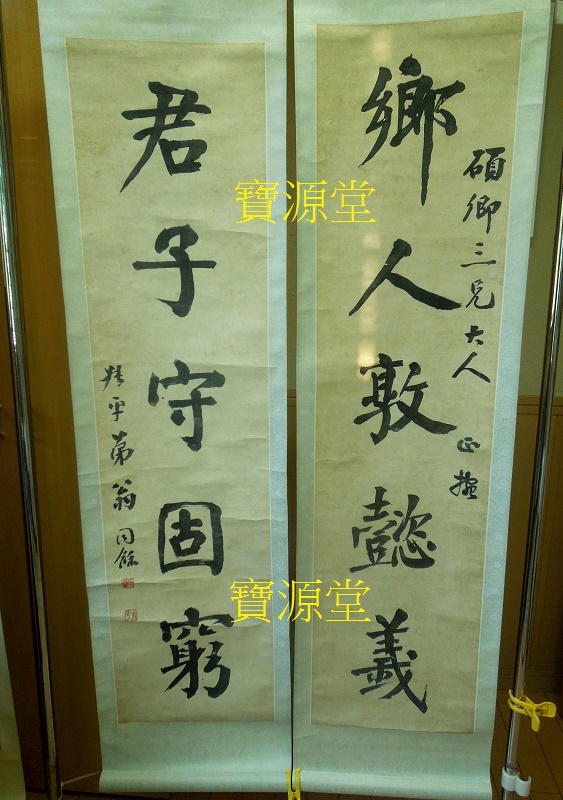 鄉人敦懿義
碩卿三兄大人 正
君子守固窮
叔平弟翁同龢
寶源堂
寶源堂